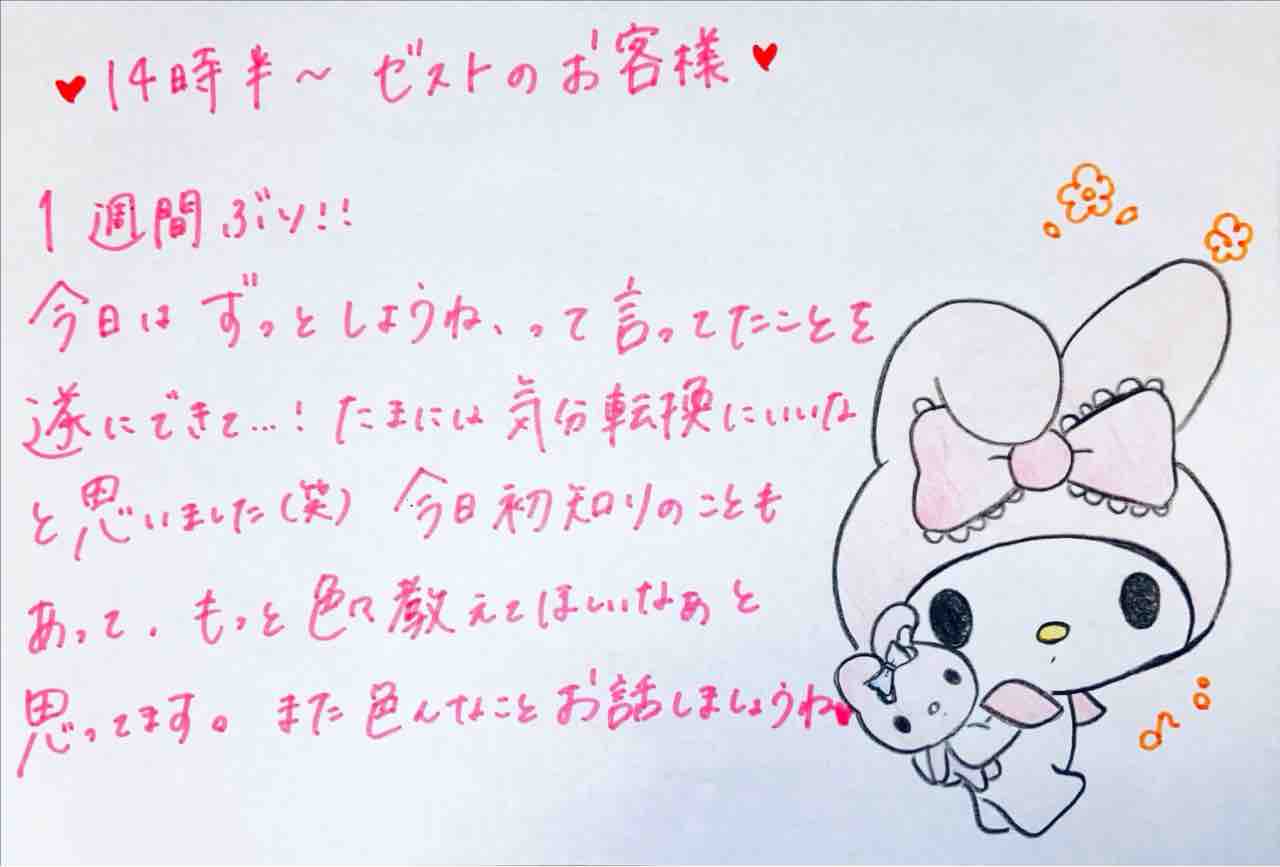 ♥14時半～ ゼストのお客様♥
1週間ぶり!!
今日は ずっとしようね、って言ってたことを
遂にできて…! たまには気分転換にいいな
と思いました(笑) 今日初知りのことも
あって、もっと色々教えてほしいなぁと
思ってます。また色んなことお話しましょうね♥